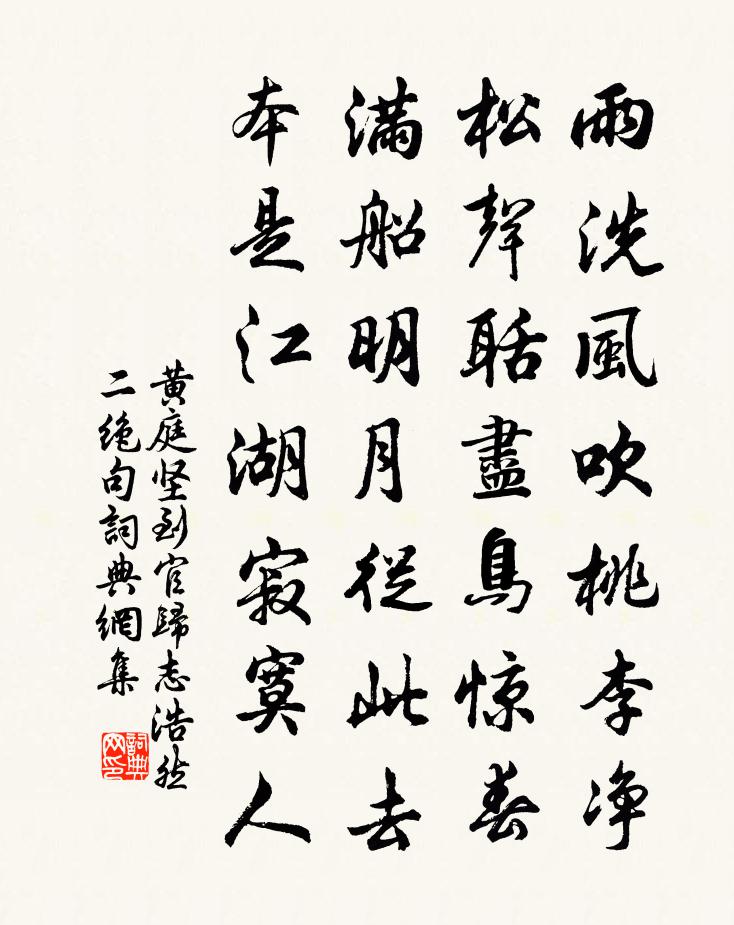 雨洗風吹桃李净
松聲聒盡鳥惊春
滿船明月從此去
本是江湖寂寞人
黄庭坚到官歸志浩然
二絶句詞典網集
詞典网印